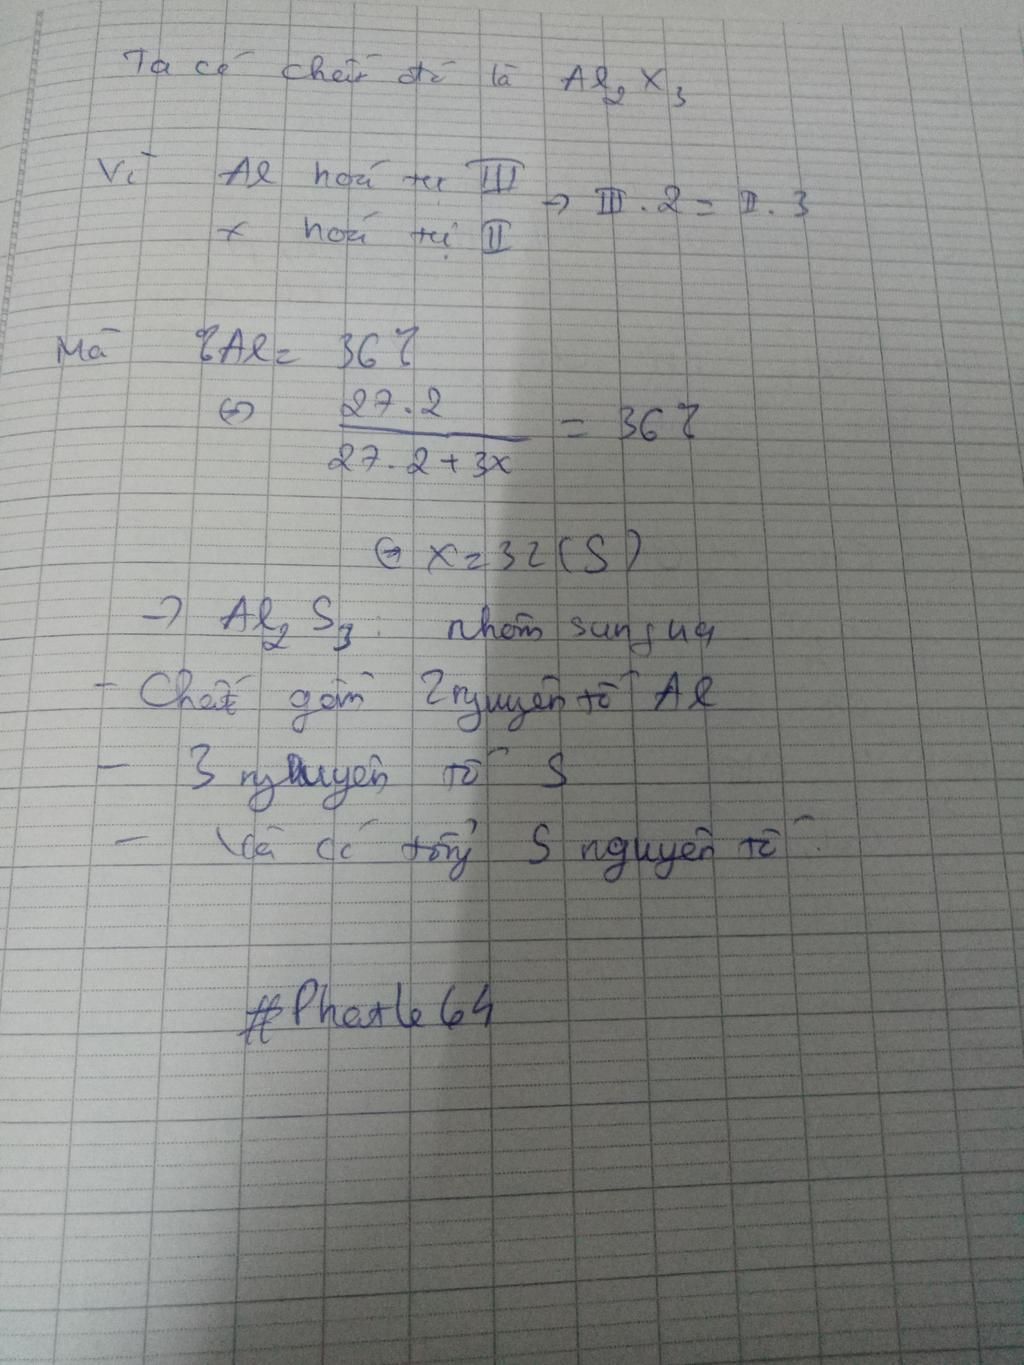 Ta có chất đó là Al₂X₃
Vì Al hoá trị III
→ III . 2 = II . 3
x hoá trị II
Mà %Al = 36%
⇔ 27.2 / 27.2 + 3x = 36%
⇔ x = 32 (S)
→ Al₂S₃ : nhôm sunfua
- Chất gồm 2 nguyên tố Al
- 3 nguyên tố S
- Và có tổng 5 nguyên tố.
#Phatle64